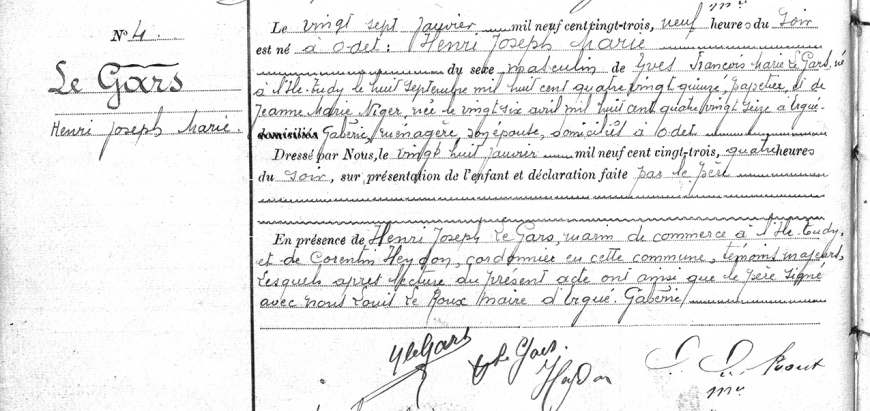 N° 4.
Le Gars
Henri Joseph Marie.
Le vingt sept Janvier mil neuf cent vingt-trois, neuf heures du Soir
est né à Odet: Henri Joseph Marie
du sexe masculin de Yves François Marie Le Gars, né
à l'Ile-Tudy le huit Septembre mil huit cent quatre vingt quinze, papetier, et de
Jeanne Marie Niger, née le vingt six avril mil huit cent quatre vingt seize à Ergué-
domiciliés Gabéric, ménagère, son épouse, domiciliés à Odet
Dressé par Nous, le vingt huit Janvier mil neuf cent vingt-trois, quatre heures
du soir, sur présentation de l'enfant et déclaration faite par le père
En présence de Henri Joseph Le Gars, marin de commerce à l'Ile-Tudy,
et de Corentin Heydon, cordonnier en cette commune, témoins majeurs,
Lesquels après lecture du présent acte ont ainsi que le père signé
avec nous Louis Le Roux Maire d'Ergué-Gabéric
Y le Gars
Le Gars.
Heydon
L. L. Roux